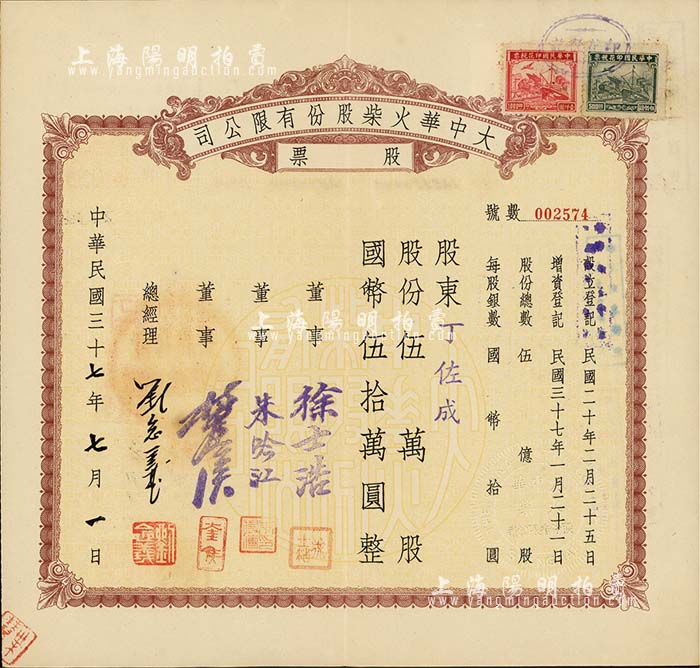 上海陽明拍賣
www.yangmingauction.com
中華民國印花稅票
中華民國印花稅票
大中華火柴股份有限公司
股票
號數 002574
設立登記 民國二十年二月二十五日
增資登記 民國三十七年一月二十一日
股份總數 伍億股
每股銀數 國幣拾圓
股東 丁佐成
股份伍萬股
國幣伍拾萬圓整
董事 徐士浩
董事 朱吟江
董事
總經理 劉念義
中華民國三十七年七月一日
上海陽明拍賣
www.yangmingauction.com
上海陽明拍賣
www.yangmingauction.com